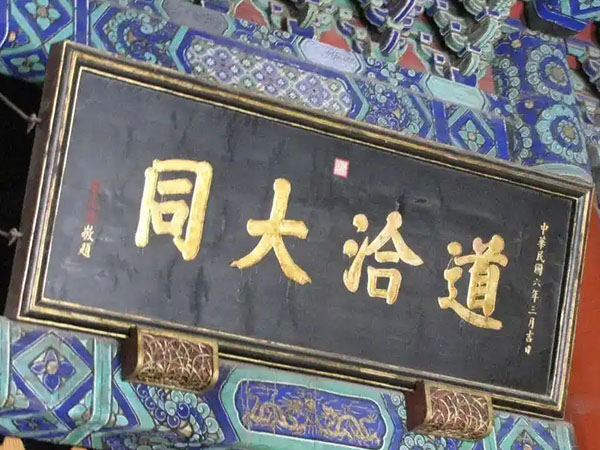 中華民國六年三月吉日
道洽大同
敬題